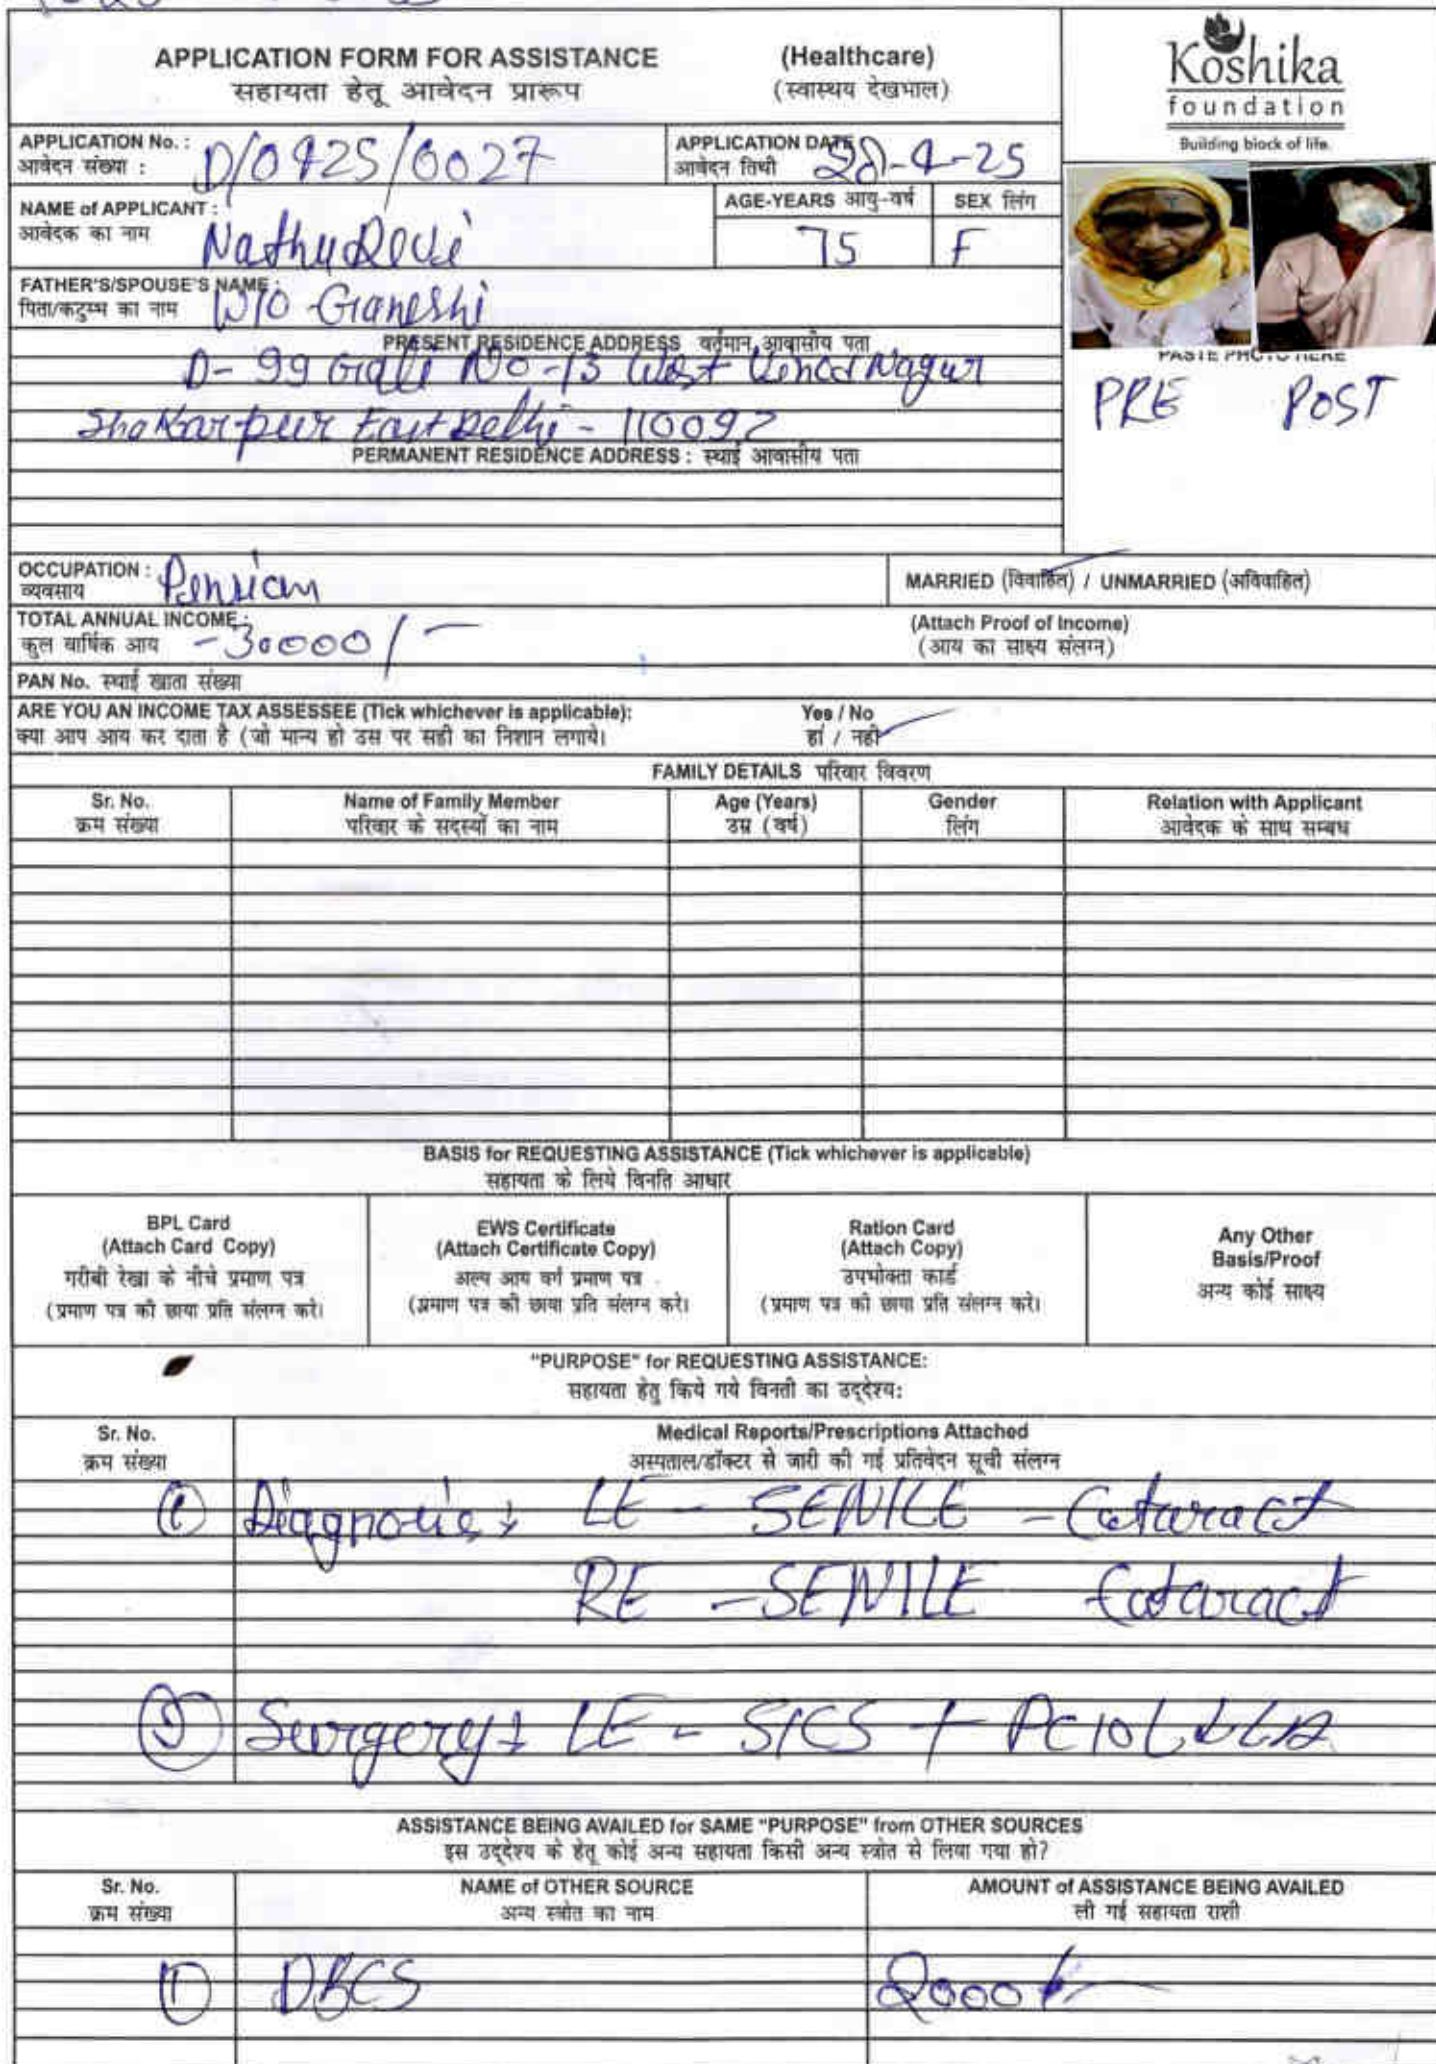 APPLICATION FORM FOR ASSISTANCE (Healthcare)
सहायता हेतू आवेदन प्रारूप (स्वास्थय देखभाल)
Koshika
foundation
Building block of life.
APPLICATION No. : D/0425/0027
आवेदन संख्या :
APPLICATION DATE 28-4-25
आवेदन तिथी
NAME of APPLICANT : Nathu Devi
आवेदक का नाम
AGE-YEARS आयु-वर्ष 75
SEX लिंग F
FATHER'S/SPOUSE'S NAME : W/O Ganeshi
पिता/कटुम्भ का नाम
PRESENT RESIDENCE ADDRESS वर्तमान आवासीय पता
D-99 Gali No-13 West Vinod Nagur
Shakarpur East Delhi - 110092
PERMANENT RESIDENCE ADDRESS : स्थाई आवासीय पता
PASTE PHOTO HERE
PRE POST
OCCUPATION : Pension
व्यवसाय
MARRIED (विवाहित) / UNMARRIED (अविवाहित)
TOTAL ANNUAL INCOME : -30000/-
कुल वार्षिक आय
(Attach Proof of Income)
(आय का साक्ष्य संलग्न)
PAN No. स्थाई खाता संख्या
ARE YOU AN INCOME TAX ASSESSEE (Tick whichever is applicable): Yes / No
क्या आप आय कर दाता है (जो मान्य हो उस पर सही का निशान लगाये। हां / नही
FAMILY DETAILS परिवार विवरण
Sr. No. Name of Family Member Age (Years) Gender Relation with Applicant
क्रम संख्या परिवार के सदस्यों का नाम उम्र (वर्ष) लिंग आवेदक के साथ सम्बध
BASIS for REQUESTING ASSISTANCE (Tick whichever is applicable)
सहायता के लिये विनति आधार
BPL Card
(Attach Card Copy)
गरीबी रेखा के नीचे प्रमाण पत्र
(प्रमाण पत्र की छाया प्रति संलग्न करे।
EWS Certificate
(Attach Certificate Copy)
अल्प आय वर्ग प्रमाण पत्र
(प्रमाण पत्र की छाया प्रति संलग्न करे।
Ration Card
(Attach Copy)
उपभोक्ता कार्ड
(प्रमाण पत्र की छाया प्रति संलग्न करे।
Any Other
Basis/Proof
अन्य कोई साक्ष्य
"PURPOSE" for REQUESTING ASSISTANCE:
सहायता हेतु किये गये विनती का उद्देश्य:
Sr. No. Medical Reports/Prescriptions Attached
क्रम संख्या अस्पताल/डॉक्टर से जारी की गई प्रतिवेदन सूची संलग्न
① Diagnosis: LE - SENILE - Cataract
RE - SENILE Cataract
② Surgery: LE - SICS + PCIOL
ASSISTANCE BEING AVAILED for SAME "PURPOSE" from OTHER SOURCES
इस उद्देश्य के हेतू कोई अन्य सहायता किसी अन्य स्त्रोत से लिया गया हो?
Sr. No. NAME of OTHER SOURCE AMOUNT of ASSISTANCE BEING AVAILED
क्रम संख्या अन्य स्त्रोत का नाम ली गई सहायता राशी
① DBCS 2000/-